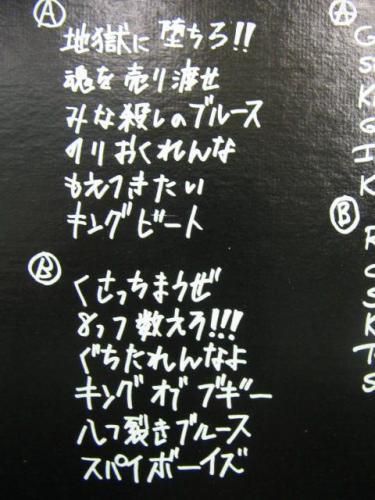 Ⓐ
地獄に堕ちろ!!
魂を売り渡せ
みな殺しのブルース
のりおくれんな
もえつきたい
キングビート
Ⓑ
くさっちまうぜ
8つ数えろ!!!
ぐちたれんなよ
キング オブ ブギー
八つ裂きブルース
スパイボーイズ
Ⓐ
G
S
K
G
I
K
Ⓑ
R
O
S
K
T
S